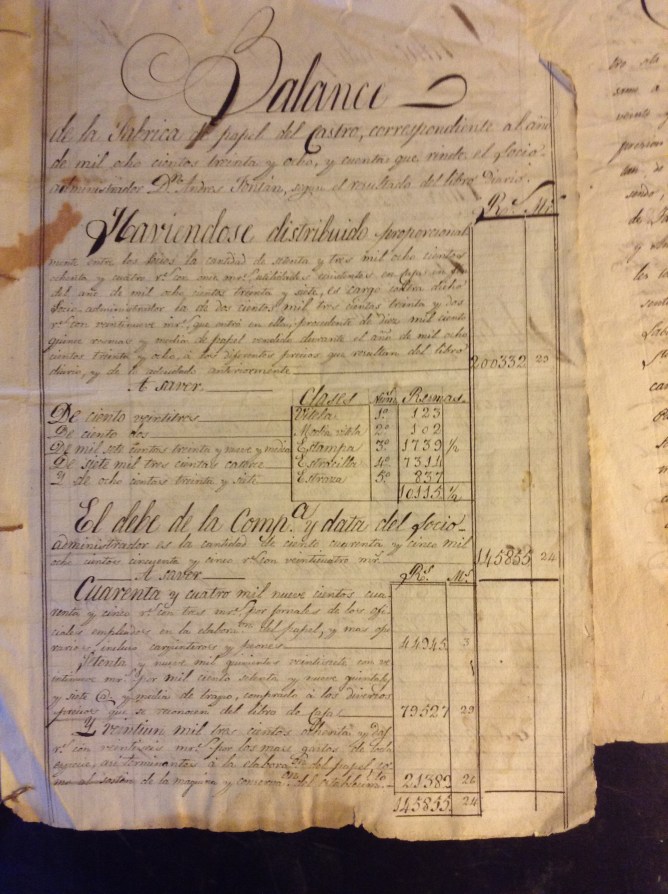 Balance
de la Fabrica de papel del Castro, correspondiente al año
de mil ocho cientos treinta y ocho, y cuenta que rinde el Socio
administrador Dn. Andres Fontán, segun el resultado del libro Diario.
Rs. Ms.
Haviendose distribuido proporcional
mente entre los Socios la cantidad de setenta y tres mil ocho cientos
ochenta y cuatro rs. con once mrs. existentes en Caja en fin
del año de mil ocho cientos treinta y siete, es cargo contra dicho
Socio administrador la de dos cientos mil tres cientos treinta y dos
rs. con veintinueve mrs. que entró en ella, procedente de diez mil ciento
quince resmas y media de papel vendido durante el año de mil ocho
cientos treinta y ocho, á los diferentes precios que resultan del libro
diario, y de la actividad anteriormente 200332 29
A saver
Clases Num. Resmas
De ciento veintitres Vitela 1º 123
De ciento dos Media vitela 2º 102
De mil siete cientas treinta y nueve y media Estampa 3º 1739 1/2
De siete mil tres cientas catorce Estracilla 4º 7314
Y de ocho cientas treinta y siete Estraza 5º 837
10115 1/2
El debe de la Comp.a y data del Socio
administrador es la cantidad de ciento cuarenta y cinco mil
ocho cientos cincuenta y cinco rs. con veinticuatro mrs. 145855 24
A saver Rs. Ms.
Cuarenta y cuatro mil nueve cientos cua
renta y cinco rs. con tres mrs. por jornales de los ofi
ciales empleados en la elabora.on del papel, y mas ope
rarios, inclusos carpinteros y peones 44945 3
Setenta y nueve mil quinientos veintisiete con ve
intinueve mrs. por mil ciento setenta y nueve quintales
y siete @ y media de trapo, comprado á los diversos
precios que se reconocen del libro de Caja 79527 29
Y veintiun mil tres cientos ochenta y dos
rs. con veintiseis mrs. por los mas gastos de toda
especie, asi terminantes á la elabora.on del papel co
mo al sosten de la maquina y conserva.on del establecim.to 21382 26
145855 24